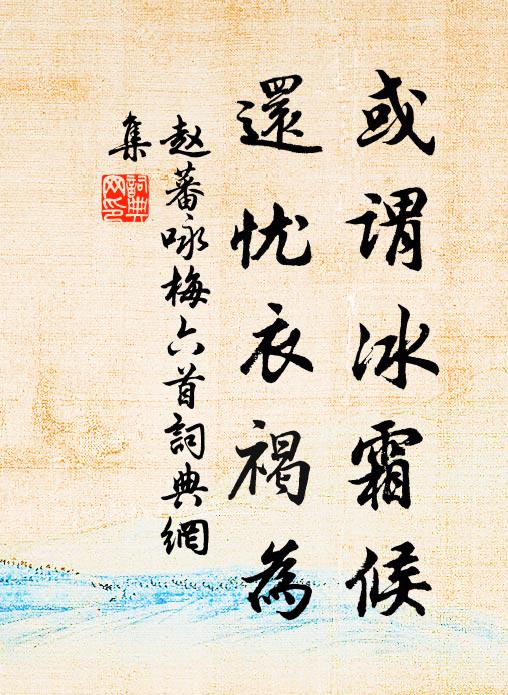 或谓冰霜候
還忧衣褐為
赵蕃咏梅六首詞典網
集
詞典網印